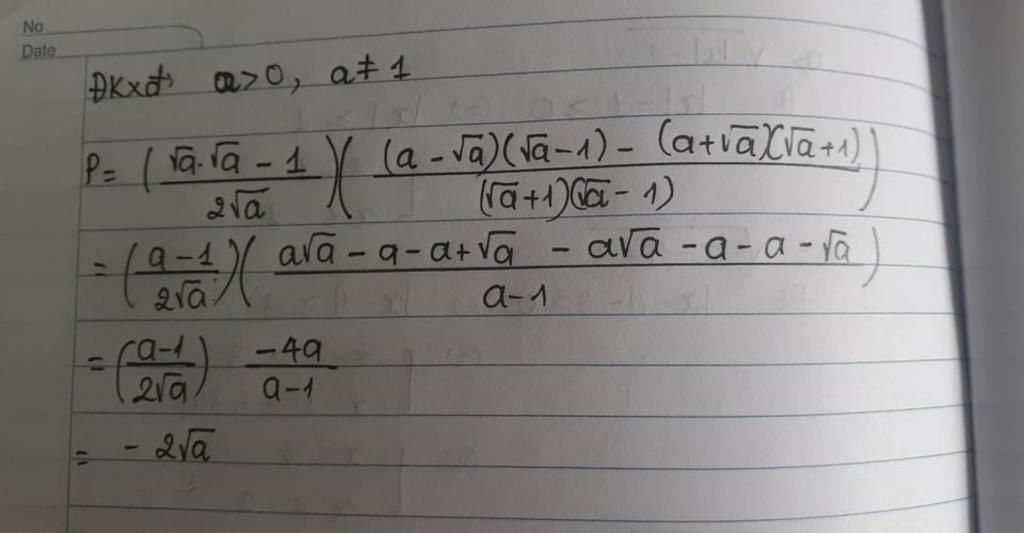 No
Date
ĐKxđ: a>0, a≠1
P= (√a.√a - 1 / 2√a)((a - √a)(√a - 1) - (a+√a)(√a+1) / (√a+1)(√a - 1))
= (a - 1 / 2√a)(a√a - a - a + √a - a√a - a - a - √a / a - 1)
= (a-1 / 2√a) -4a / a-1
= - 2√a